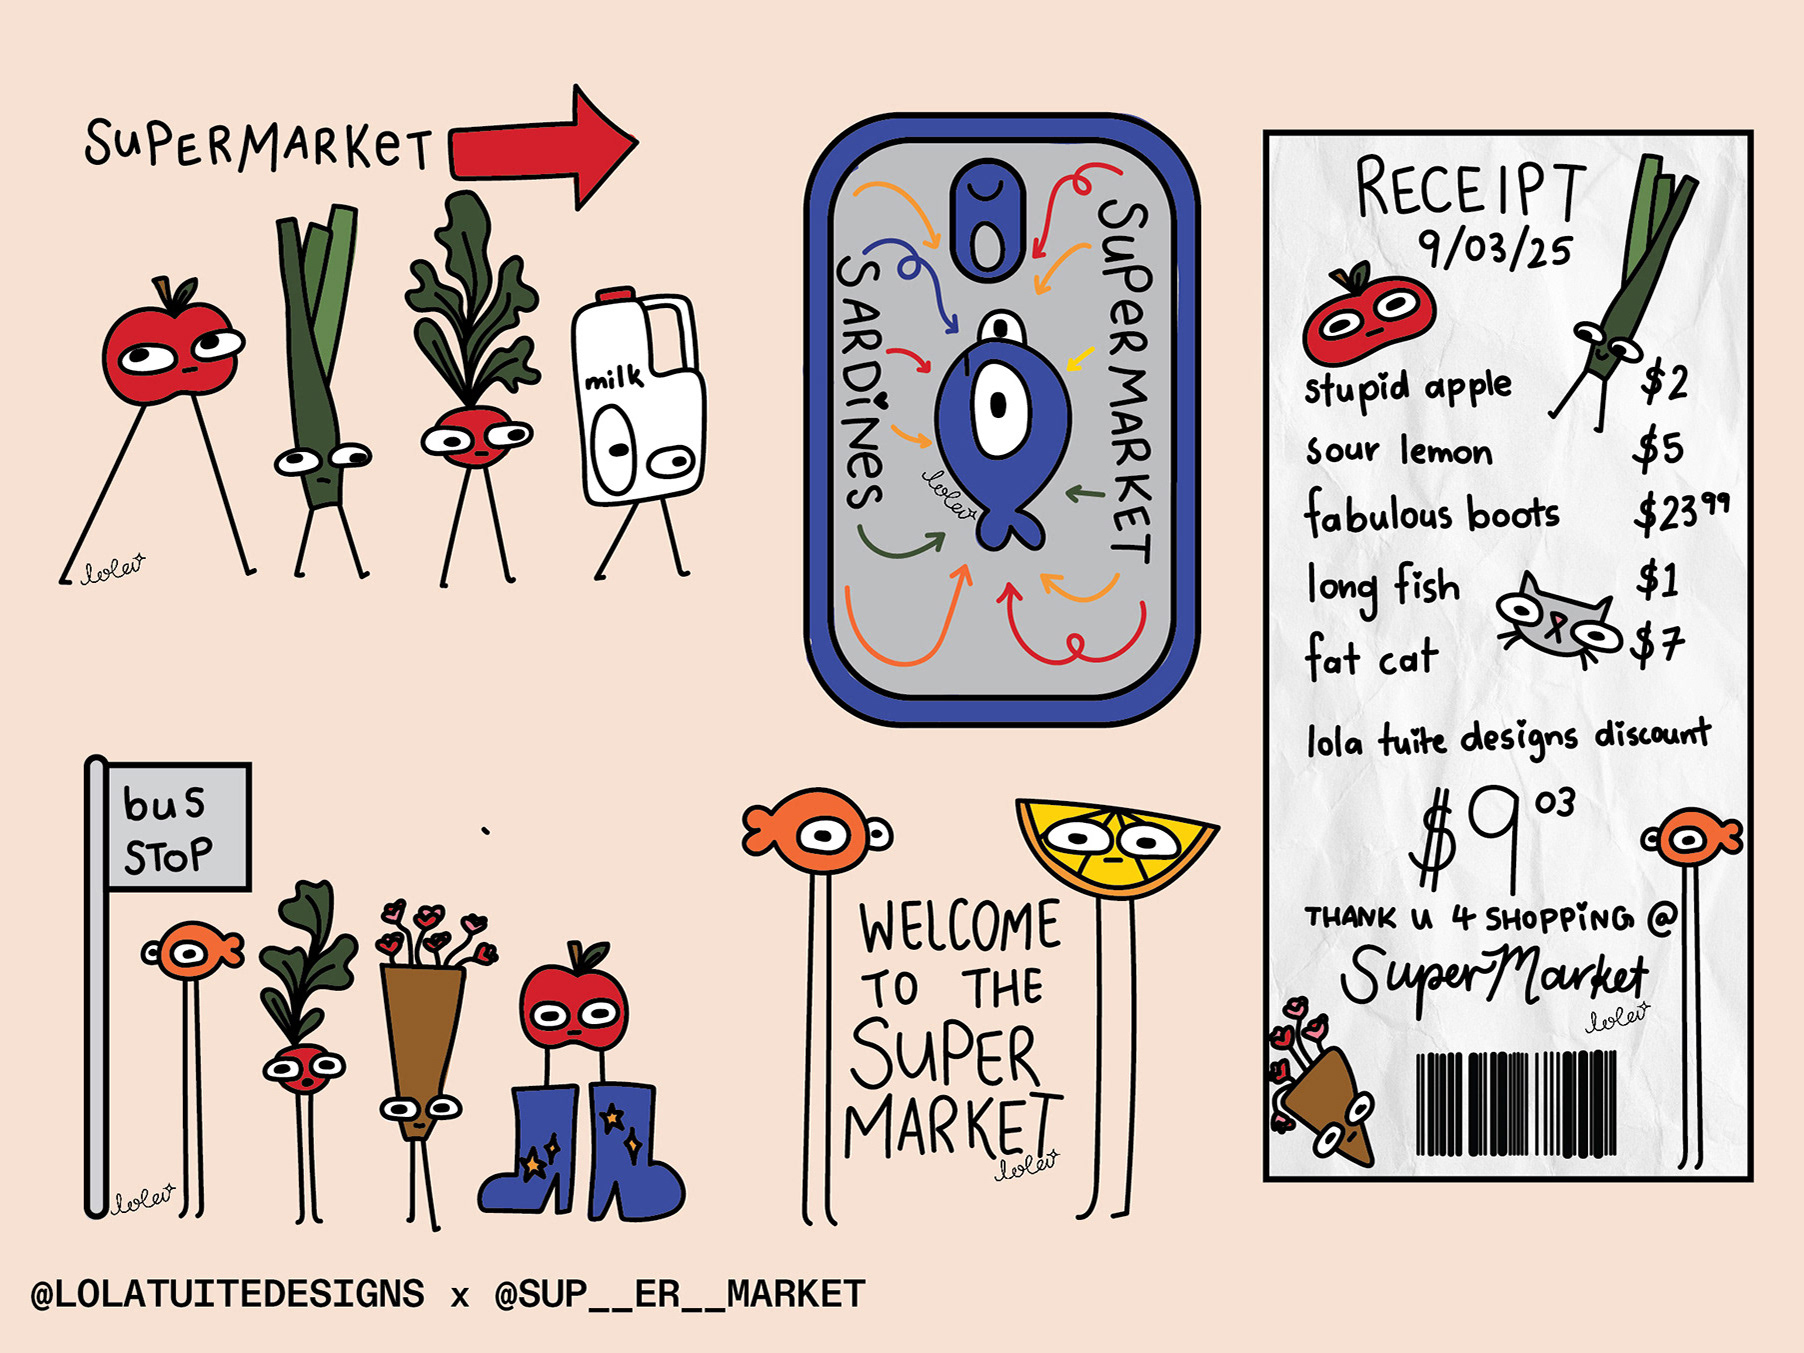 SUPERMARKET
milk
lolav
SARDiNES
SUPERMARKET
lolav
RECEIPT
9/03/25
stupid apple $2
sour lemon $5
fabulous boots $23 99
long fish $1
fat cat $7
lola tuite designs discount
$9 03
THANK U 4 SHOPPiNG @
SuperMarket
lolav
bus
STOP
lolav
WELCOME
TO THE
SUPER
MARKET
lolav
@LOLATUITEDESIGNS x @SUP__ER__MARKET